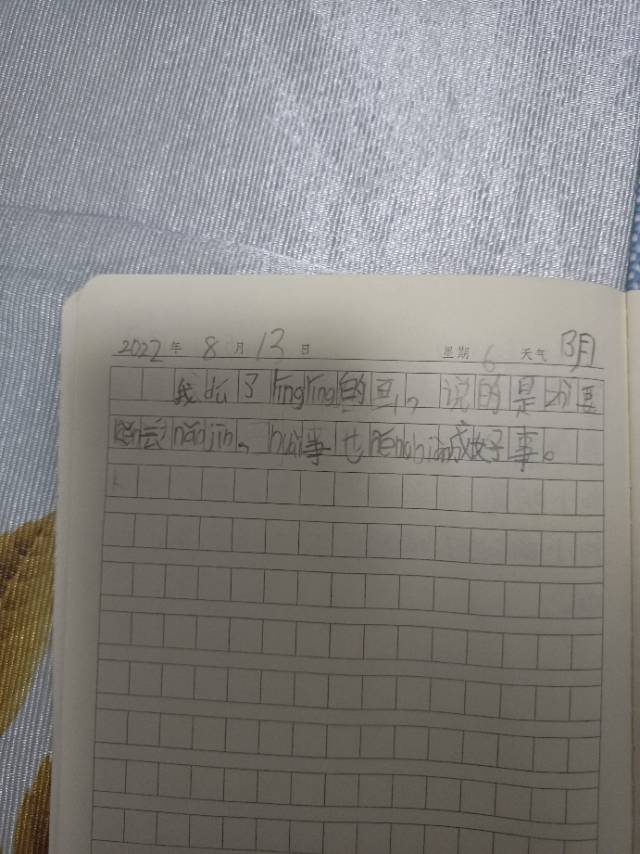 2022年 8月 13日 星期 6 天气 阴
我 dú 了 líng líng 的 豆, 说的是 只要
动 nǎo jīn, huài 事 也 néng biàn 成好事。